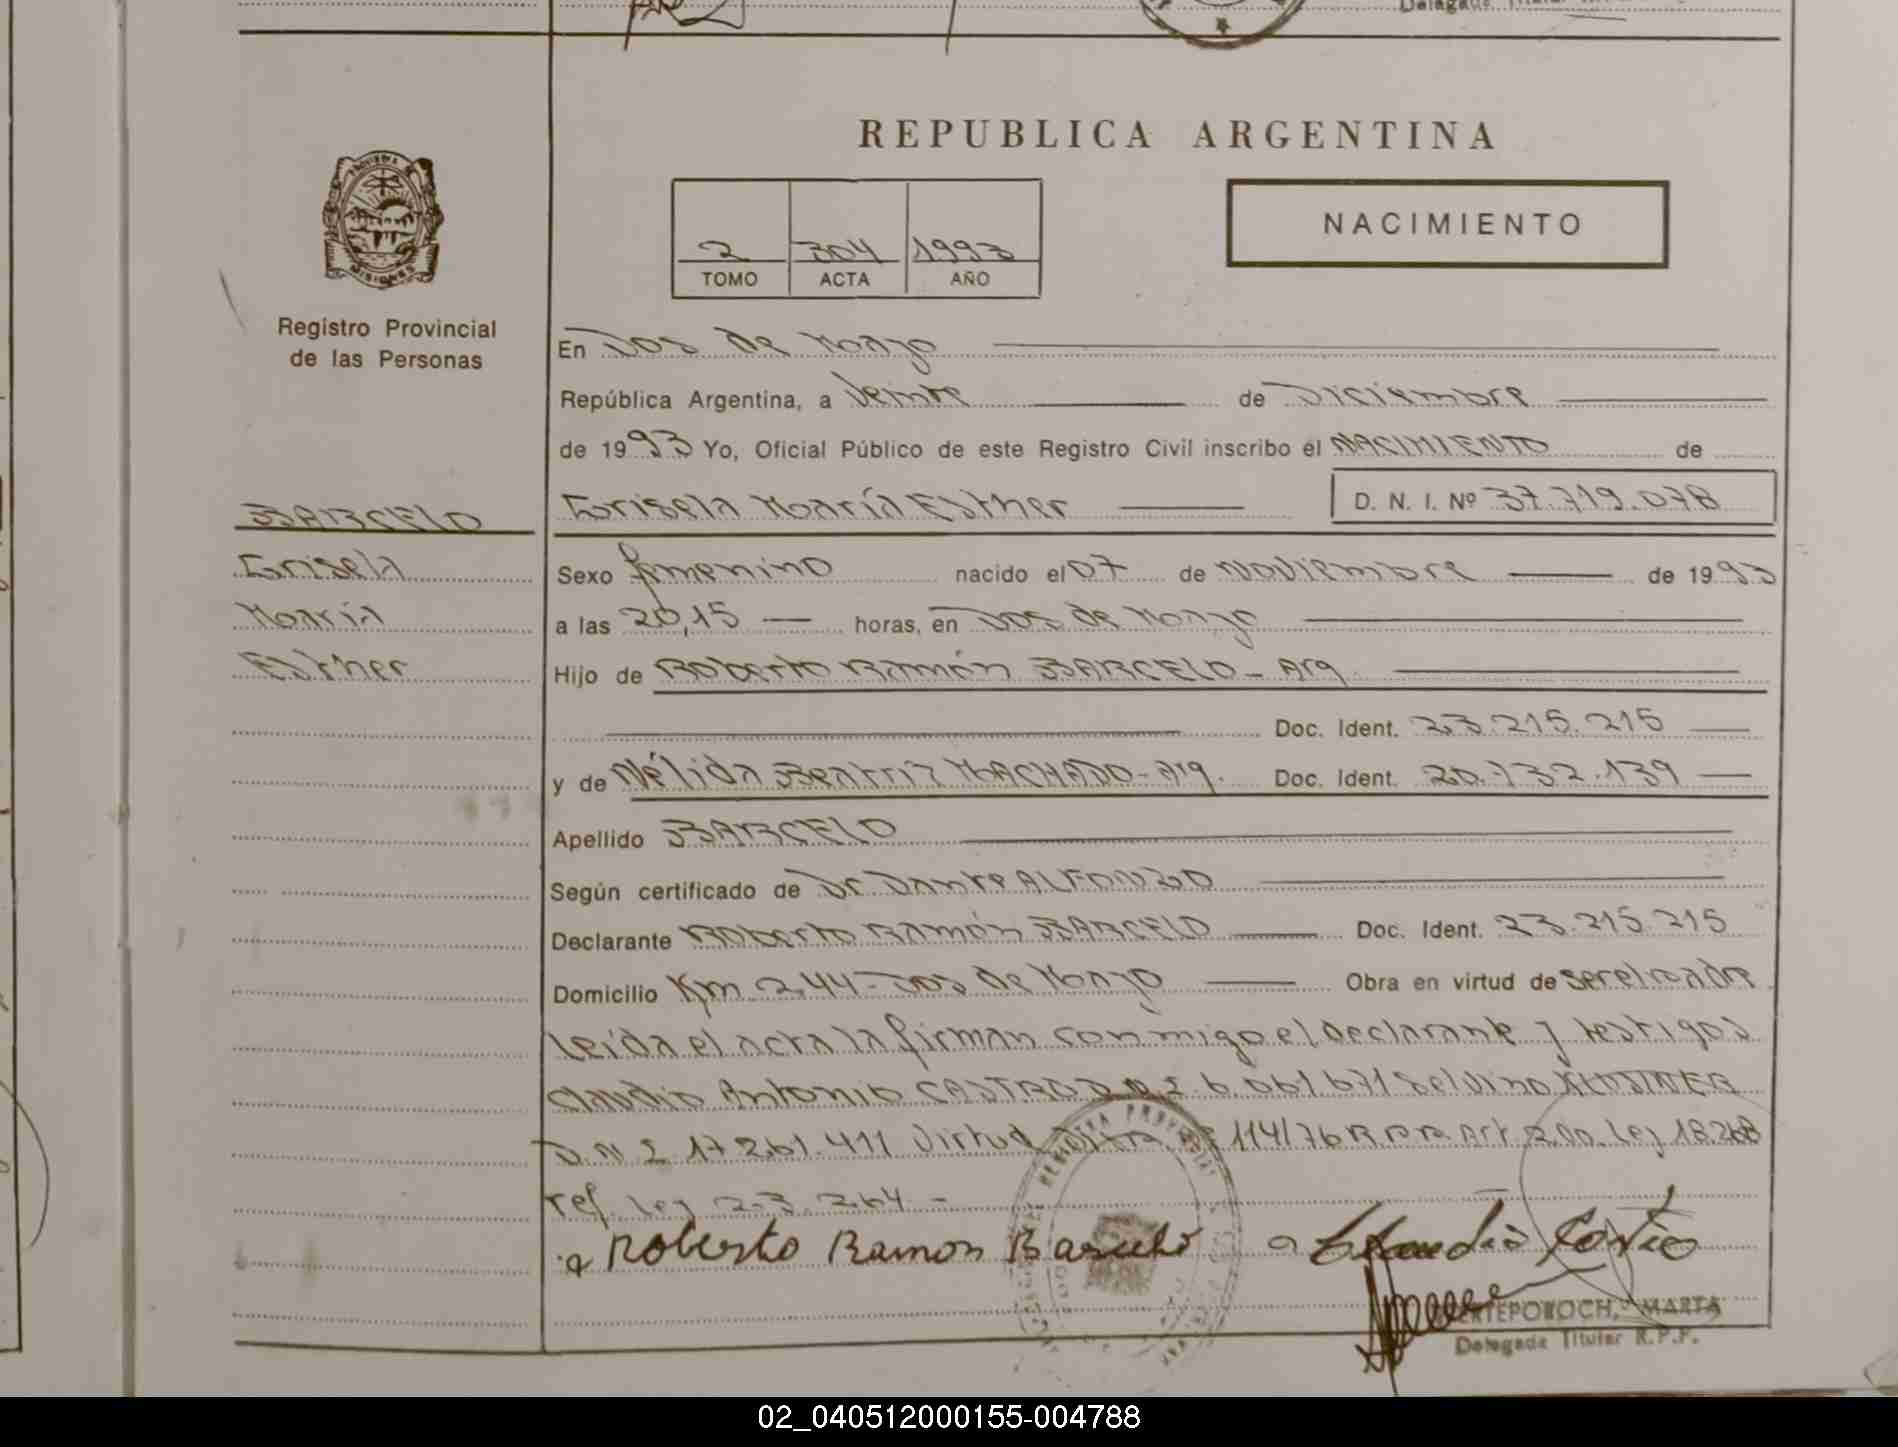 Delegada Titular
REPUBLICA ARGENTINA
PROVINCIA DE
MISIONES
NACIMIENTO
2 304 1993
TOMO ACTA AÑO
Registro Provincial
de las Personas
En Dos de Mayo
República Argentina, a Veinte de Diciembre
de 1993 Yo, Oficial Público de este Registro Civil inscribo el NACIMIENTO de
BARCELO
Grisela María Esther D. N. I. Nº 37.719.078
Grisela
María
Esther
Sexo femenino nacido el 07 de Noviembre de 1993
a las 20,15 horas, en Dos de Mayo
Hijo de Roberto Ramón BARCELO - Arg
Doc. Ident. 23.215.215
y de Nélida Beatriz MACHADO - Arg. Doc. Ident. 20.732.139
Apellido BARCELO
Según certificado de Dr. Dante ALFONZO
Declarante Roberto Ramón BARCELO Doc. Ident. 23.215.215
Domicilio Km. 244 - Dos de Mayo Obra en virtud de ser el padre
Leída el acta la firman conmigo el declarante y testigos
Claudio Antonio CASTRO D.N.I. 6.061.671 Selvino
D.N.I 17.261.411 Virtud 114/76 R.P.P. Art. 2.00. Ley 18268
ref. Ley 23.264 -
Roberto Ramon Barcelo Claudio Castro
MARTA
Delegada Titular R.P.P.
02_040512000155-004788